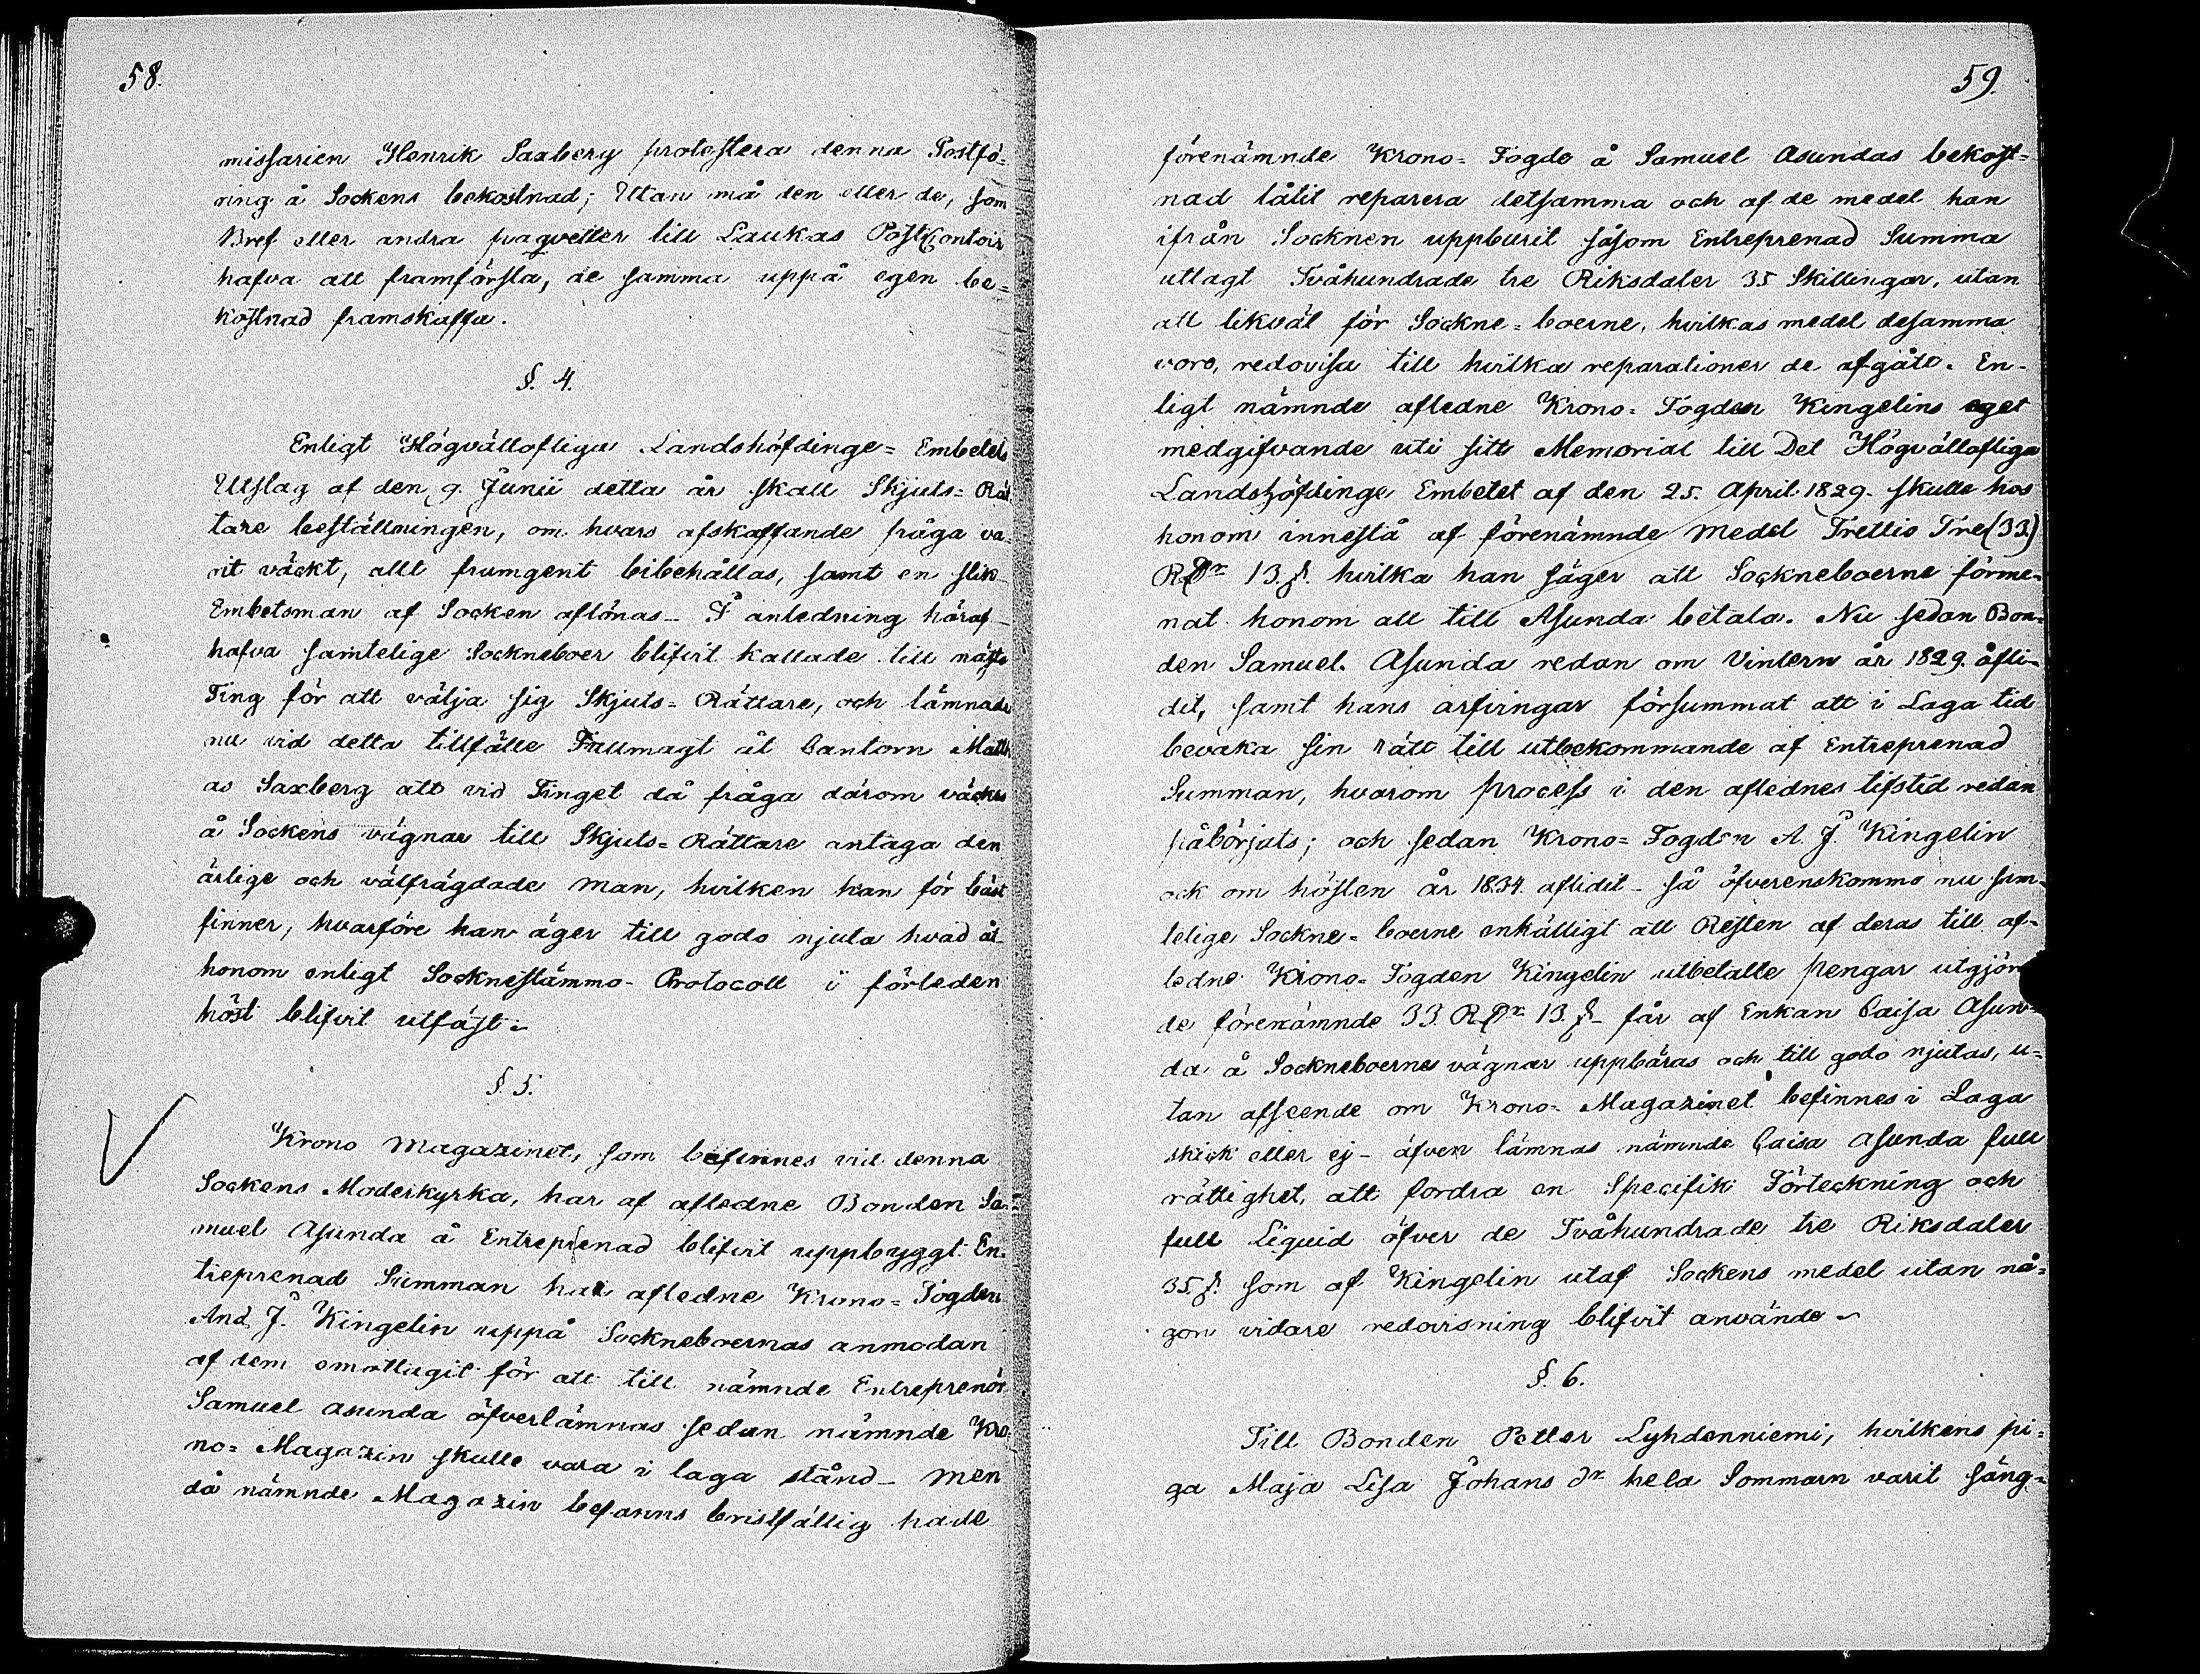 58.
missarien Henrik Saxberg protestera denna Postfö=
ring å Sockens bekostnad; Utan må den eller de, som
Bref eller andra paqvetter till Laukas PostContoir
hafva att framförsla, de samma uppå egen be=
kostnad framskaffa.
§. 4.
Enligt Högvällofliga Landshöfdinge= Embetets
Utslag af den 9. Junii detta år skall Skjuts= Rät
tare beställningen, om hvars afskaffande fråga va=
rit väckt, allt framgent bibehållas, samt en slik
Embetsman af Socken aflönas_ I anledning häraf
hafva samtelige Sockneboer blifvit kallade till nästa
Ting för att välja sig Skjuts= Rättare, och lämnade
nu vid detta tillfälle Fullmagt åt Cantorn Matth
as Saxberg att vid Tinget då fråga därom väckes
å Sockens vägnar till Skjuts= Rättare antaga den
ärlige och välfrägdade man, hvilken han för bäst
finner, hvarföre han äger till godo njuta hvad åt
honom enligt Socknestämmo- Protocoll i förleden
höst blifvit utfäst.
§. 5.
Krono Magazinet, som befinnes vid denna
Sockens Moderkyrka, har af afledne Bonden Sa=
muel Asunda å Entreprenad blifvit uppbyggt. En=
treprenad Summan har afledne Krono= Fogden
And. J. Kingelin uppå Sockneboernas anmodan
af dem emottagit för att till nämnde Entreprenör
Samuel asunda öfverlämnas sedan nämnde Kro=
no= Magazin skulle vara i laga stånd_ men
då nämnde Magazin befanns bristfällig hade
59.
förenämnde Krono= Fogde å Samuel Asundas bekost=
nad låtit reparera detsamma och af de medel han
ifrån Socknen uppburit såsom Entreprenad Summa
utlagt Tvåhundrade tre Riksdaler 35 Skillingar, utan
att likväl för Sockne= boerne, hvilkas medel desamma
voro, redovisa till hvilka reparationer de afgått. En=
ligt nämnde afledne Krono= Fogden Kingelins eget
medgifvande uti sitt Memorial till Det Högvällofliga
Landshöfdinge Embetet af den 25. April 1829. skulle hos
honom innestå af förenämnde medel Trettio Tre (33)
RDr 13. s. hvilka han säger att Sockneboerne förme=
nat honom att till Asunda betala. Nu sedan Bon=
den Samuel. Asunda redan om Vintern år 1829. afli=
dit, samt hans arfvingar försummat att i Laga tid
bevaka sin rätt till utbekommande af Entreprenad
Summan, hvarom process i den aflednes lifstid redan
påbörjats; och sedan Krono= Fogden A. J. Kingelin
ock om hösten år 1834. aflidit_ så öfverenskommo nu sam=
telige Sockne= boerne enhälligt att Resten af deras till af=
ledne Krono= Fogden Kingelin utbetalte pengar utgjöran
de förenämnde 33. RDr 13. s_ får af Enkan Caisa Asun=
da å Sockneboernes vägnar uppbäras och till godo njutas, u=
tan afseende om Krono= Magazinet befinnes i Laga
skick eller ej_ äfven lämnas nämnde Caisa asunda full
rättighet, att fordra en Specifik Förteckning och
full Liquid öfver de Tvåhundrade tre Riksdaler
35. s. som af Kingelin utaf Sockens medel utan nå=
gon vidare redovisning blifvit använde.
§. 6.
Till Bonden Petter Lyhdenniemi, hvilkens pi=
ga Maja Lisa Johans dr hela Sommarn varit säng=